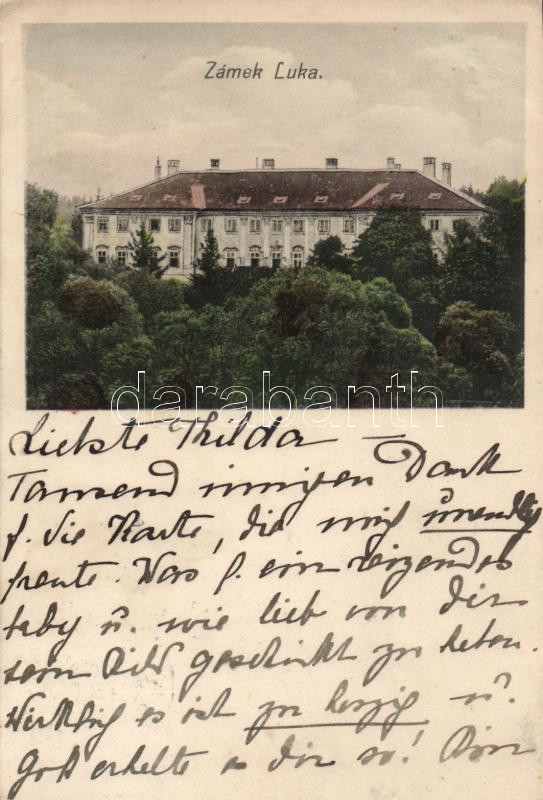 Zámek Luka.
darabanth
Liebste Thilda
Tausend innigen Dank
f. die Karte, die mich unendlich
freute. Was f. ein reizendes
Baby u. wie lieb von dir
sein Bild geschickt zu haben.
Wirklich es ist zu herzig u.
Gott erhalte es dir so! Dein